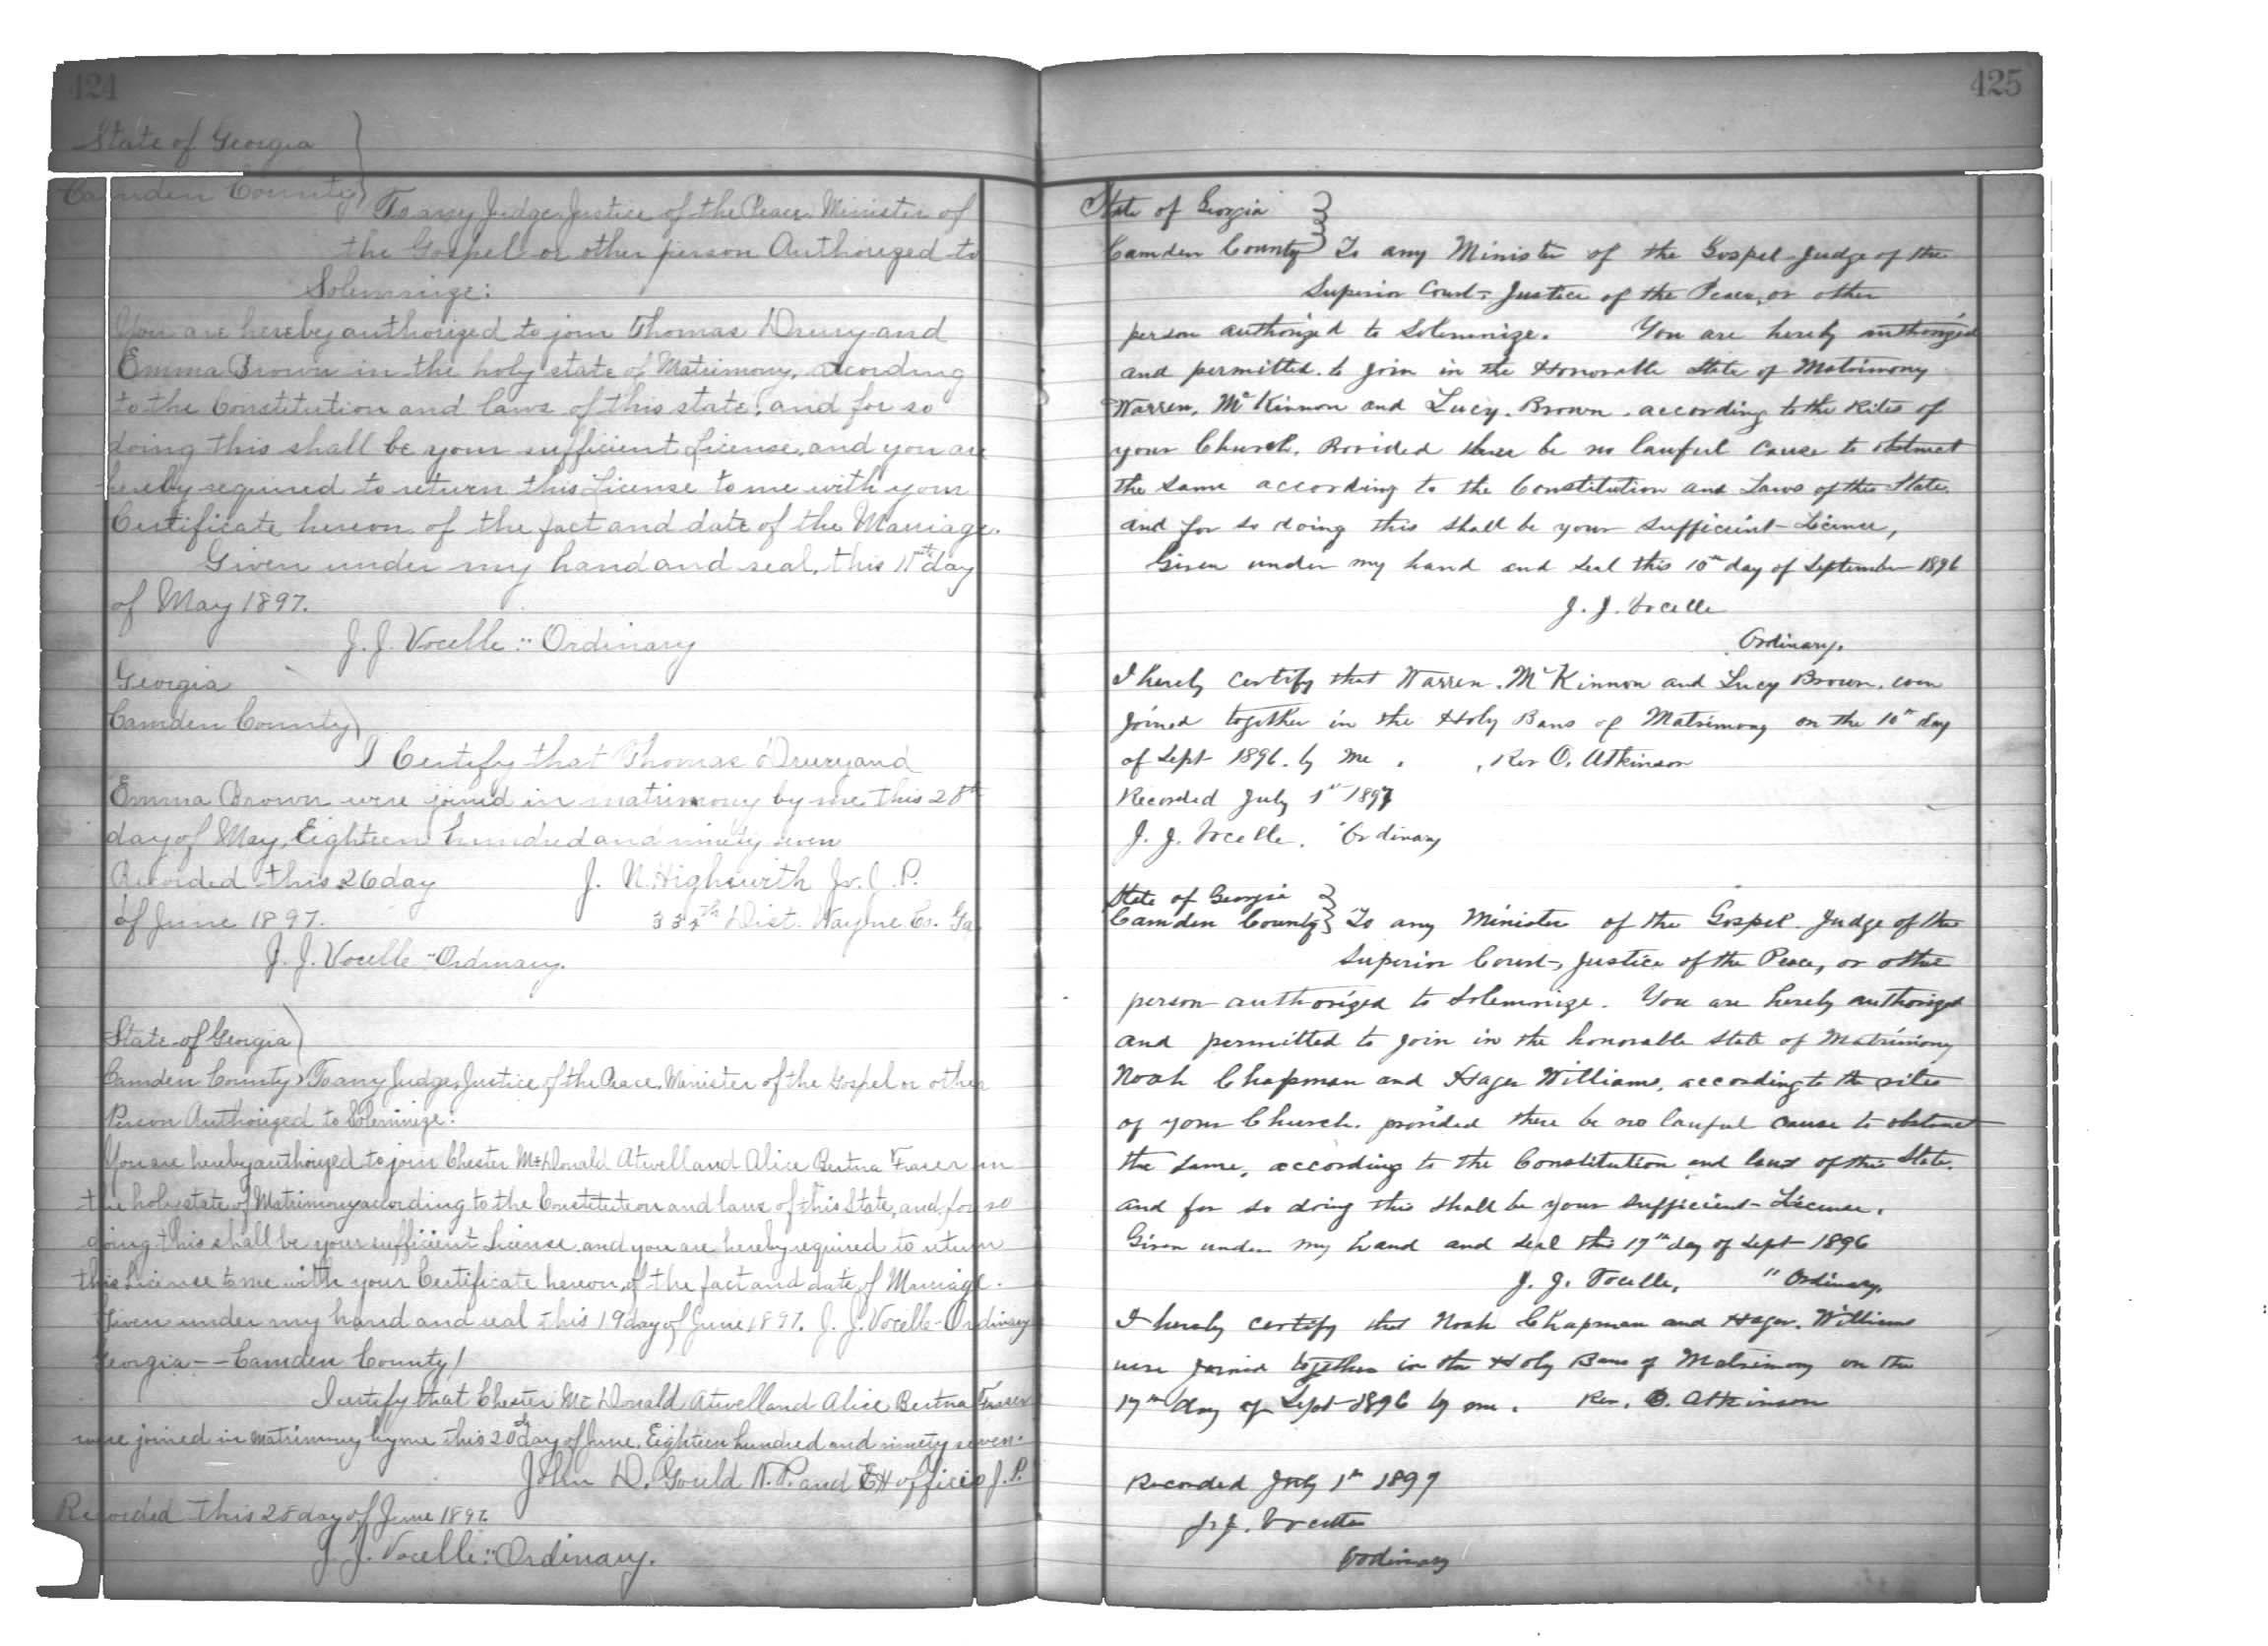 424
State of Georgia
Camden County
To any Judge, Justice of the Peace, Minister of
the Gospel or other person Authorized to
Solemnize:
You are hereby authorized to join Thomas Drury and
Emma Brown in the holy state of Matrimony, acording
to the Constitution and laws of this state, and for so
doing this shall be your sufficient License, and you are
hereby required to return this License to me with your
Certificate hereon of the fact and date of the Marriage.
Given under my hand and seal, this 11th day
of May 1897.
J. J. Vocelle :: Ordinary
Georgia
Camden County
I Certify that Thomas Drury and
Emma Brown were joined in matrimony by me this 28th
day of May, Eighteen hundred and ninety seven
Recorded this 26 day J. N. Highswith Jr. J. P.
of June 1897. Dist. Wayne Co. Ga
J. J. Vocelle - Ordinary.
State of Georgia
Camden County To any Judge, Justice of the Peace, Minister of the Gospel or other
Person Authorized to Solemnize:
You are hereby authorized to join Chester McDonald Atwell and Alice Bertna Fraser in
the holy state of Matrimony according to the Constitution and laws of this State, and for so
doing this shall be your sufficient License, and you are hereby required to return
this License to me with your Certificate hereon, of the fact and date of Marriage.
Given under my hand and seal this 19 day of June 1897. J. J. Vocelle - Ordinary
Georgia -- Camden County
I certify that Chester McDonald Atwell and Alice Bertna Fraser
were joined in matrimony by me this 20th day of June, Eighteen hundred and ninety seven.
John D. Gould N. P. and EX officio J. P.
Recorded this 28 day of June 1897
J. J. Vocelle :: Ordinary.
425
State of Georgia
Camden County To any Minister of the Gospel Judge of the
Superior Court, Justice of the Peace, or other
person authorized to Solemnize. You are hereby authorized
and permitted to join in the Honorable State of Matrimony
Warren. McKinnon and Lucy. Brown. according to the Rites of
your Church. Provided there be no lawful cause to obstruct
the Same according to the Constitution and Laws of this State.
and for so doing this shall be your Sufficient Licence,
Given under my hand and seal this 10th day of September 1896
J. J. Vocelle
Ordinary.
I hereby certify that Warren. McKinnon and Lucy Brown. were
Joined together in the Holy Bans of Matrimony on the 10th day
of Sept 1896. by me. Rev O. Atkinson
Recorded July 1st 1897
J. J. Vocelle. Ordinary
State of Georgia
Camden County To any Minister of the Gospel. Judge of the
Superior Court, Justice of the Peace, or other
person authorized to Solemnize. You are hereby authorized
and permitted to join in the honorable state of Matrimony
Noah Chapman and Hager Williams, according to the rites
of your Church. provided there be no lawful cause to obstruct
the Same, according to the Constitution and laws of this State.
and for so doing this shall be your Sufficient Licence.
Given under my hand and seal this 17th day of Sept 1896
J. J. Vocelle, " Ordinary.
I hereby certify that Noah Chapman and Hager. Williams
were joined together in the Holy Bans of Matrimony on the
17th day of Sept 1896 by me. Rev. O. Atkinson
Recorded July 1st 1897
J. J. Vocelle
Ordinary